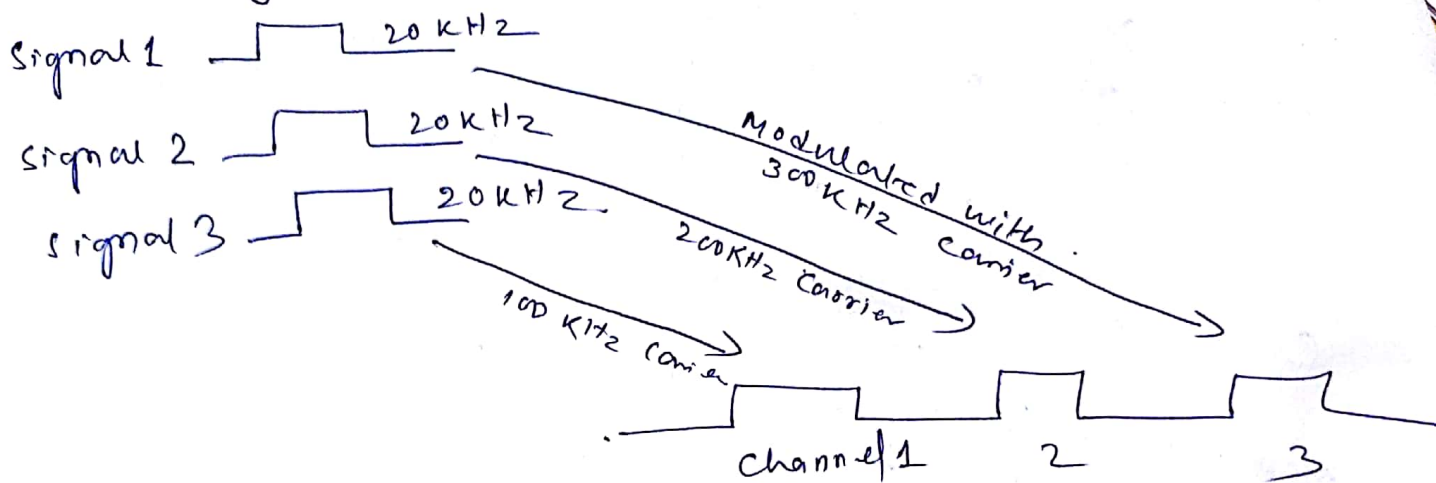 Signal 1 20 KHz
Signal 2 20KHz
Signal 3 20KHz
Modulated with
300 KHz carrier
200KHz Carrier
100 KHz Carrier
Channel 1 2 3